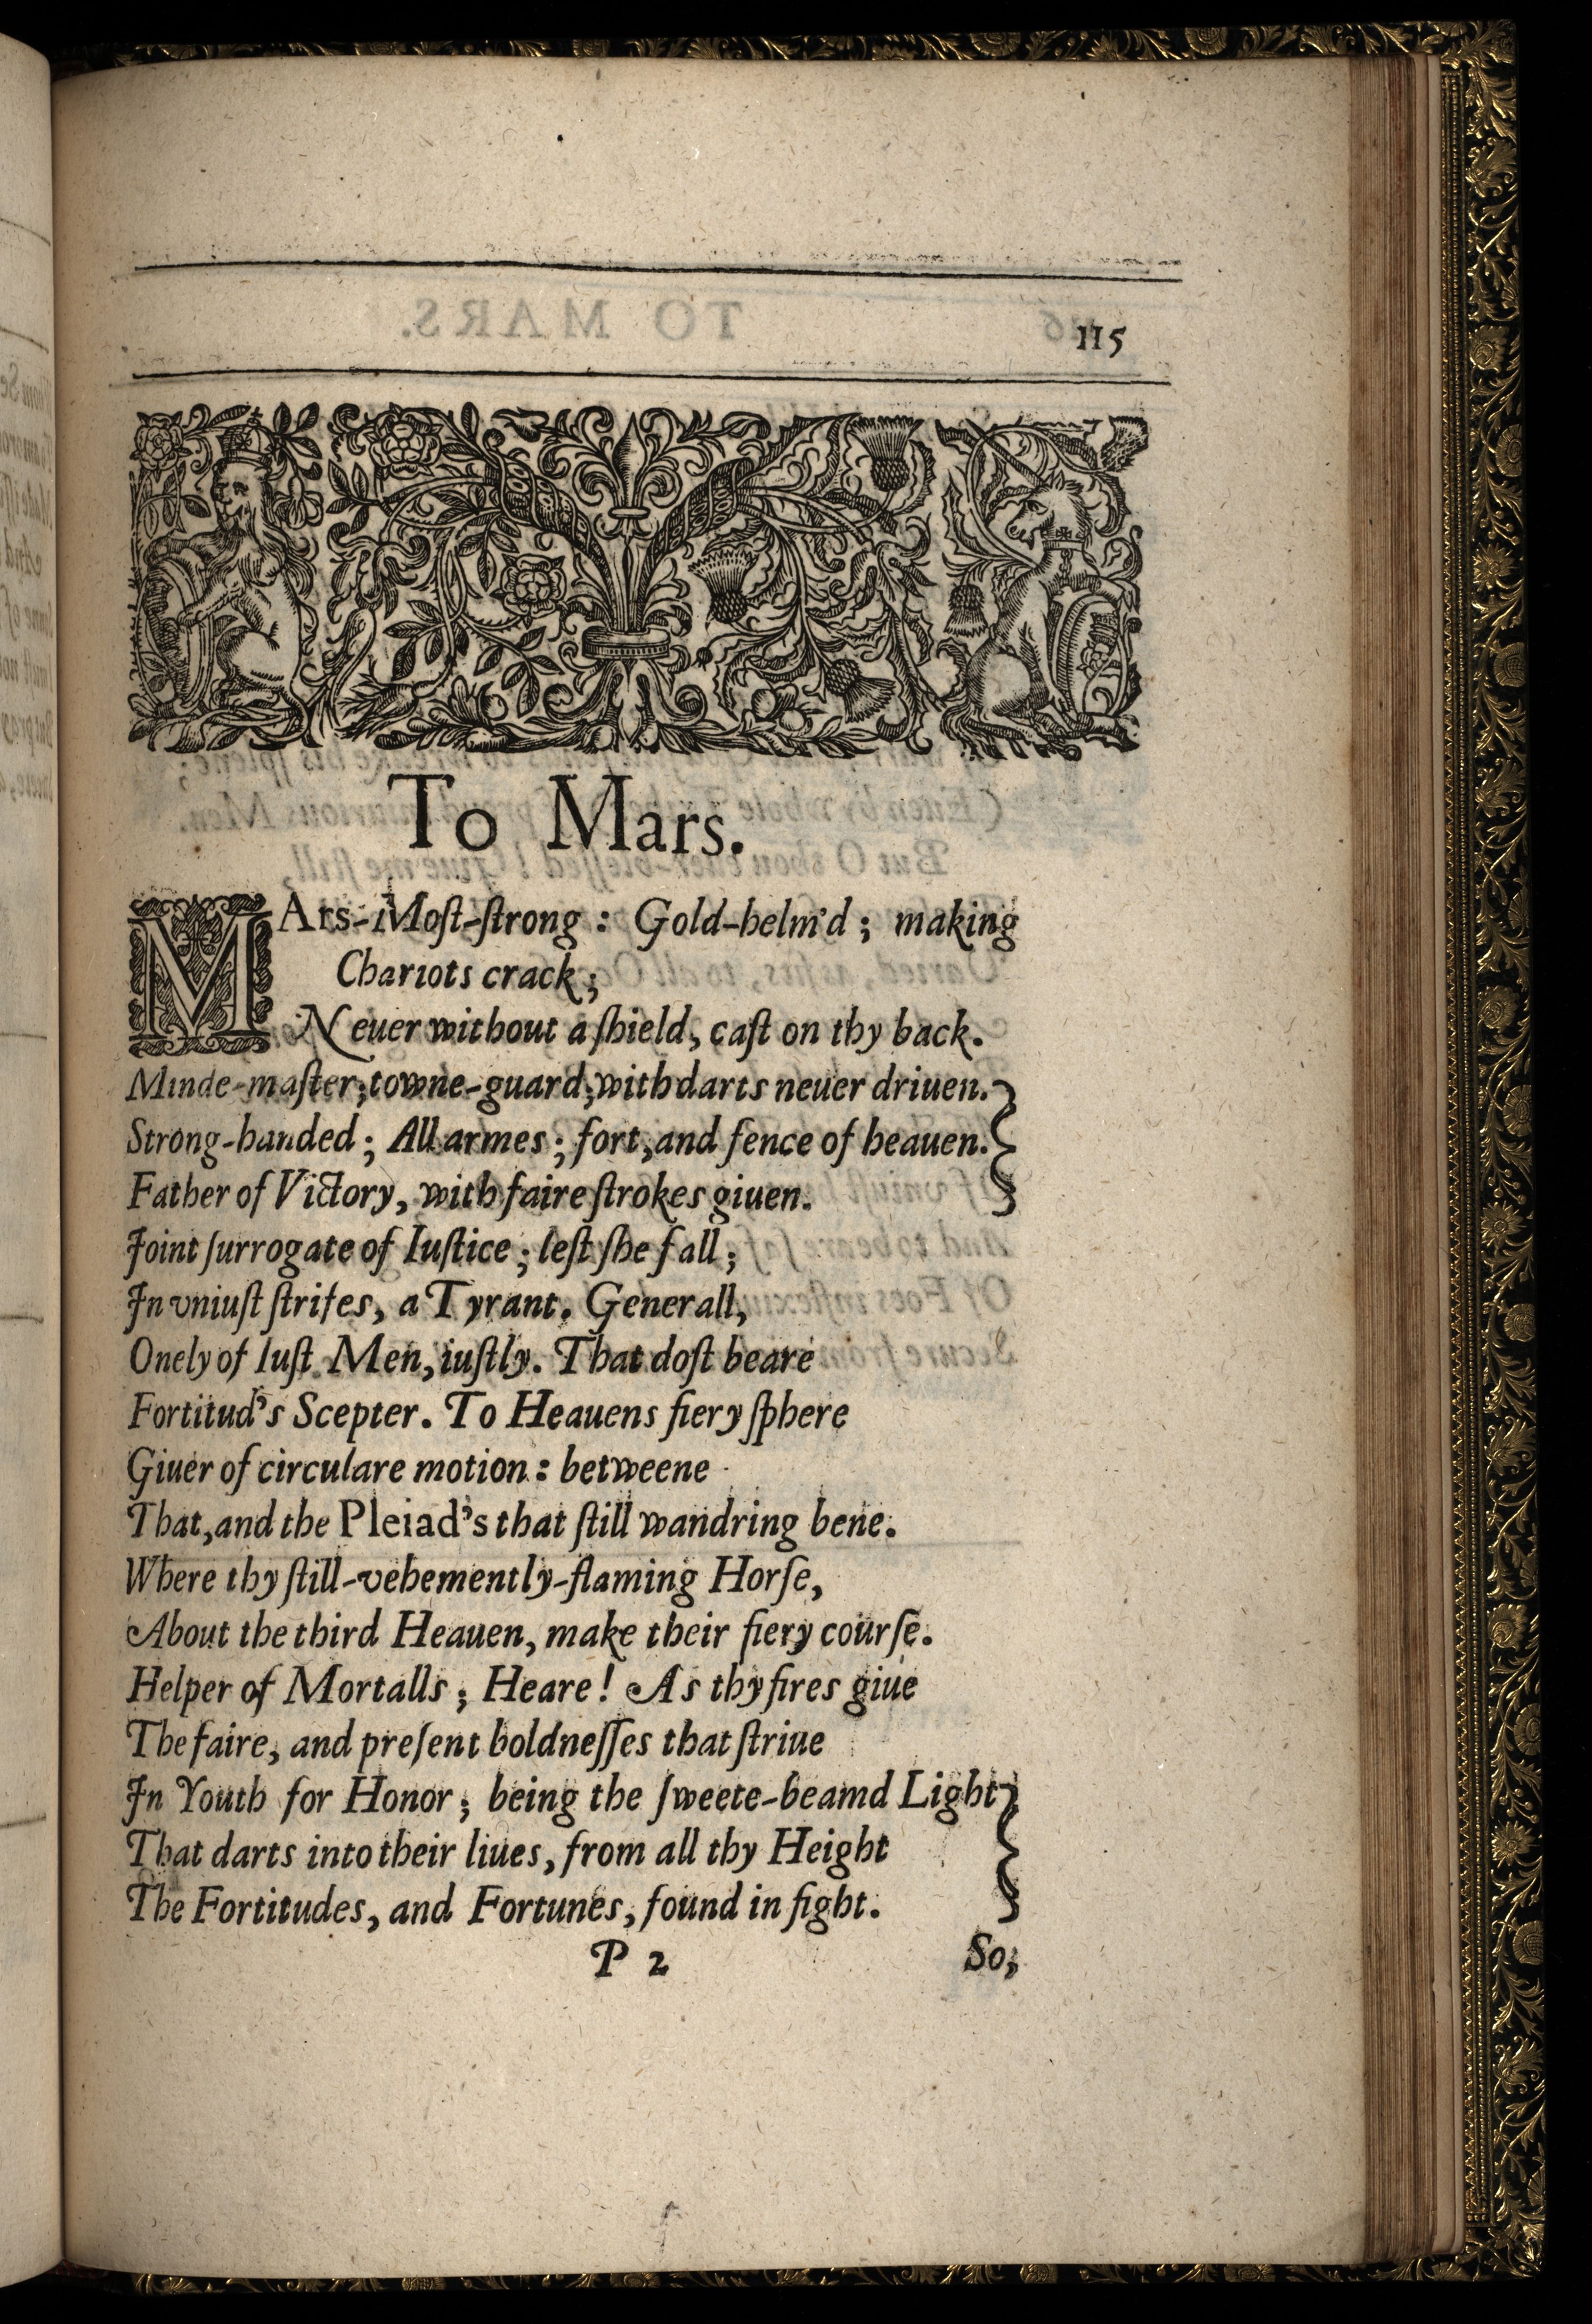 115
To Mars.
MArs-Moſt-ſtrong : Gold-helm'd ; making
Chariots crack ;
Neuer without a ſhield, caſt on thy back.
Minde-maſter; towne-guard; with darts neuer driuen.
Strong-handed ; All armes ; fort, and fence of heauen.
Father of Victory, with faire ſtrokes giuen.
Joint ſurrogate of Iuſtice ; leſt ſhe fall ;
In vniuſt ſtrifes, a Tyrant. Generall,
Onely of Iuſt Men, iuſtly. That doſt beare
Fortitud's Scepter. To Heauens fiery ſphere
Giuer of circulare motion : betweene
That, and the Pleiad's that ſtill wandring bene.
Where thy ſtill-vehemently-flaming Horſe,
About the third Heauen, make their fiery courſe.
Helper of Mortalls ; Heare ! As thy fires giue
The faire, and preſent boldneſſes that ſtriue
In Youth for Honor ; being the ſweete-beamd Light
That darts into their liues, from all thy Height
The Fortitudes, and Fortunes, found in fight.
P 2 So;